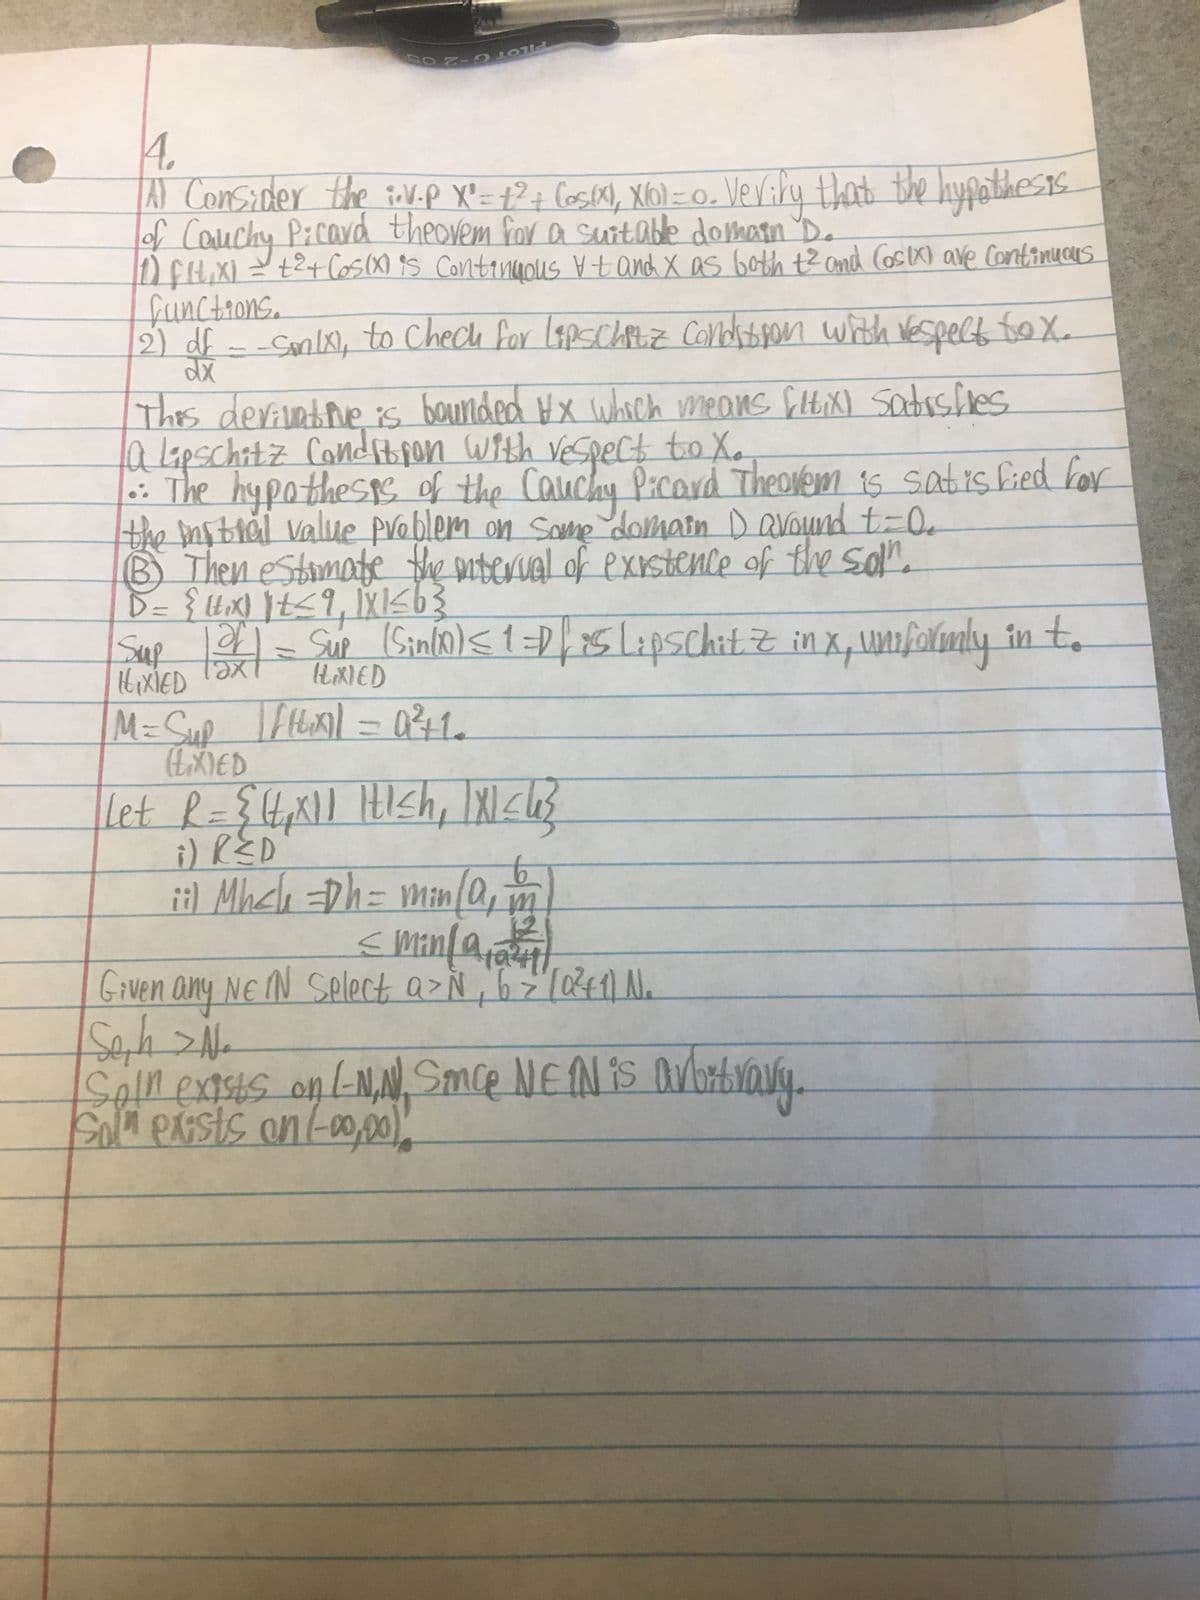 PILOT G-2 05
4.
A) Consider the i.v.p x' = t²+ Cos(x), x(0)=0. Verify that the hypothesis
of Cauchy Picard theorem for a suitable domain D.
1) f(t,x) = t²+Cos(x) is Continuous ∀ t and x as both t² and Cos(x) are Continuous
functions.
2) df/dx = -Sin(x), to Check for Lipschitz Condition with respect to x.
This derivative is bounded ∀x which means f(t,x) satisfies
a Lipschitz Condition with respect to x.
∴ The hypothesis of the Cauchy Picard Theorem is satisfied for
the initial value problem on some domain D around t=0.
(B) Then estimate the interval of existence of the soln.
D= {(t,x) | t≤9, |x|≤b}
Sup |∂f/∂x| = Sup (Sin(x)) ≤ 1 => f is Lipschitz in x, uniformly in t.
(t,x)∈D (t,x)∈D
M= Sup |f(t,x)| = a²+1.
(t,x)∈D
Let R = {(t,x) | |t|≤h, |x|≤k}
i) R≤D
ii) Mh<k => h = min(a, b/m)
≤ min(a, b/a²+1)
Given any N∈ℕ Select a>N, b>(a²+1) N.
So, h >N.
Soln exists on (-N,N), Since N∈ℕ is arbitrary.
Soln exists on (-∞,∞).